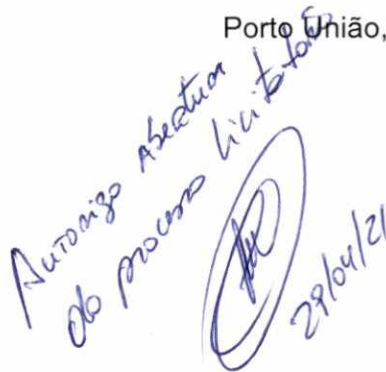 Porto União,
Autorizo Abertura
do processo licitatório
29/04/21